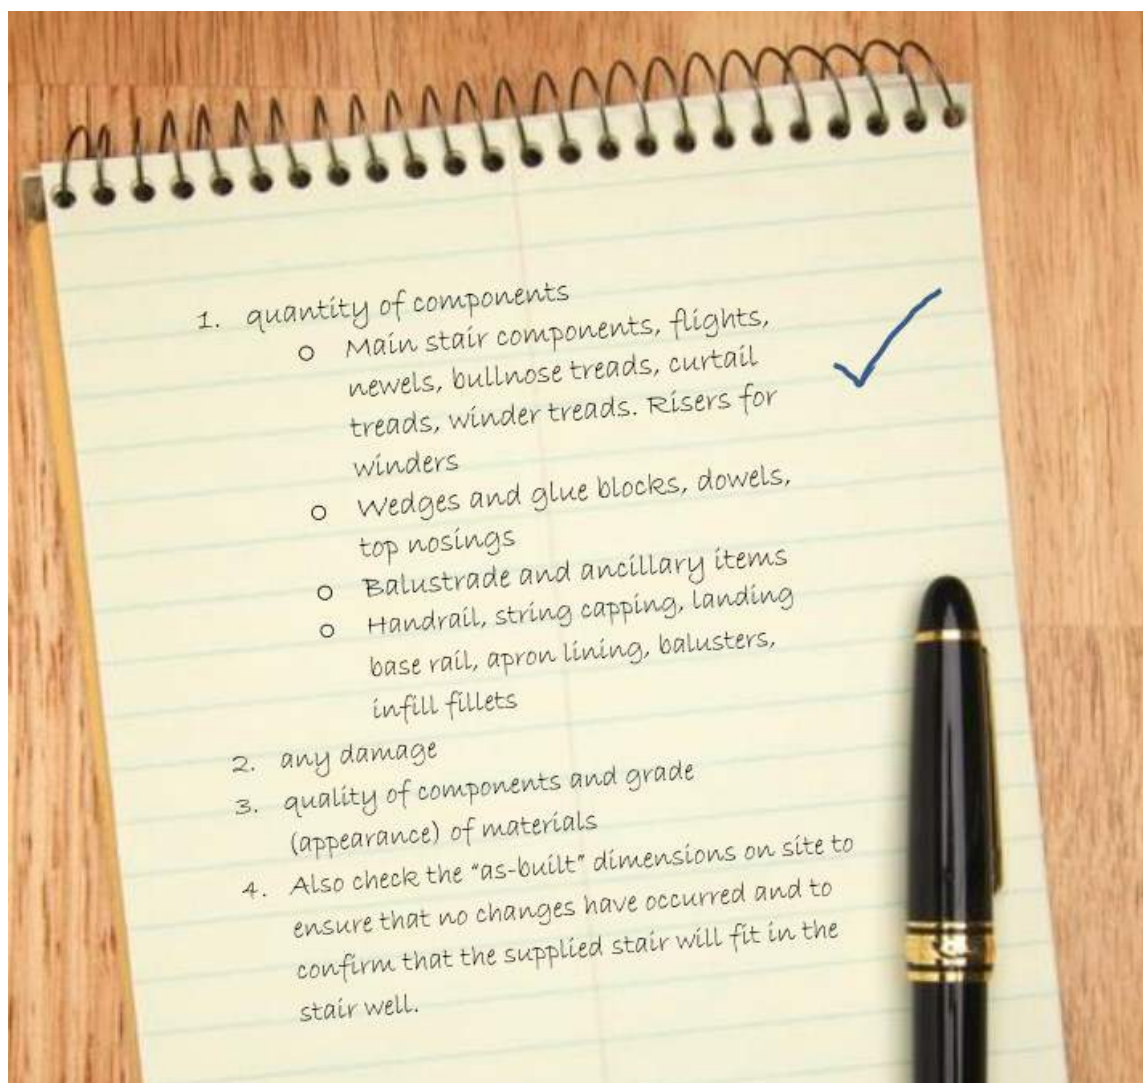 1. quantity of components
o Main stair components, flights,
newels, bullnose treads, curtail
treads, winder treads. Risers for
winders
o Wedges and glue blocks, dowels,
top nosings
o Balustrade and ancillary items
o Handrail, string capping, landing
base rail, apron lining, balusters,
infill fillets
2. any damage
3. quality of components and grade
(appearance) of materials
4. Also check the "as-built" dimensions on site to
ensure that no changes have occurred and to
confirm that the supplied stair will fit in the
stair well.